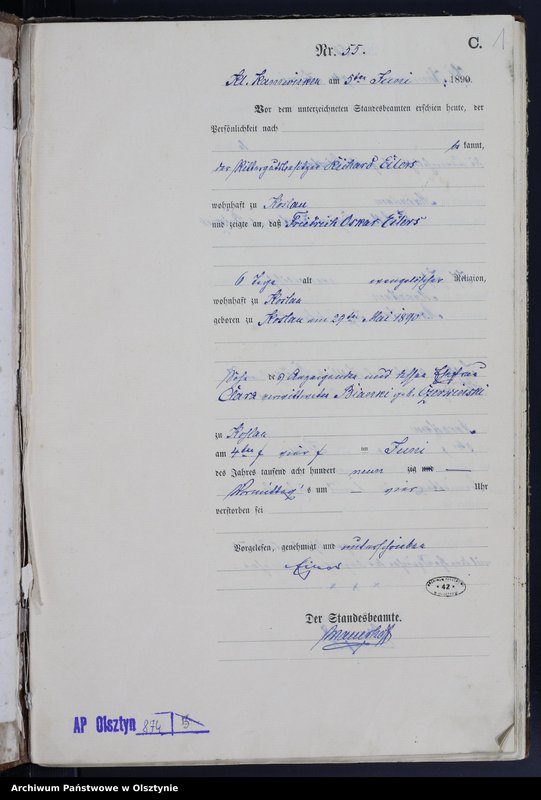 C. 1
Nr. 55.
Kl. am 5ten Juni 1890.
Vor dem unterzeichneten Standesbeamten erschien heute, der
Persönlichkeit nach
be kannt,
der Rittergutsbesitzer Richard Eilers
wohnhaft zu Koslau
und zeigte an, daß Friedrich Oskar Eilers
6 Tage alt evangelischer Religion,
wohnhaft zu Koslau
geboren zu Koslau am 29ten Mai 1890
Sohn des Anzeigenden und dessen Ehefrau
Clara verwittwete Bianki geb. Czerwinski
zu Koslau
am 4ten / vier / im Juni
des Jahres tausend acht hundert neun zig und —
Vormittags um — vier — Uhr
verstorben sei
Vorgelesen, genehmigt und unterschrieben
Eilers
+ + +
42
Der Standesbeamte.
AP Olsztyn 874 5
Archiwum Państwowe w Olsztynie